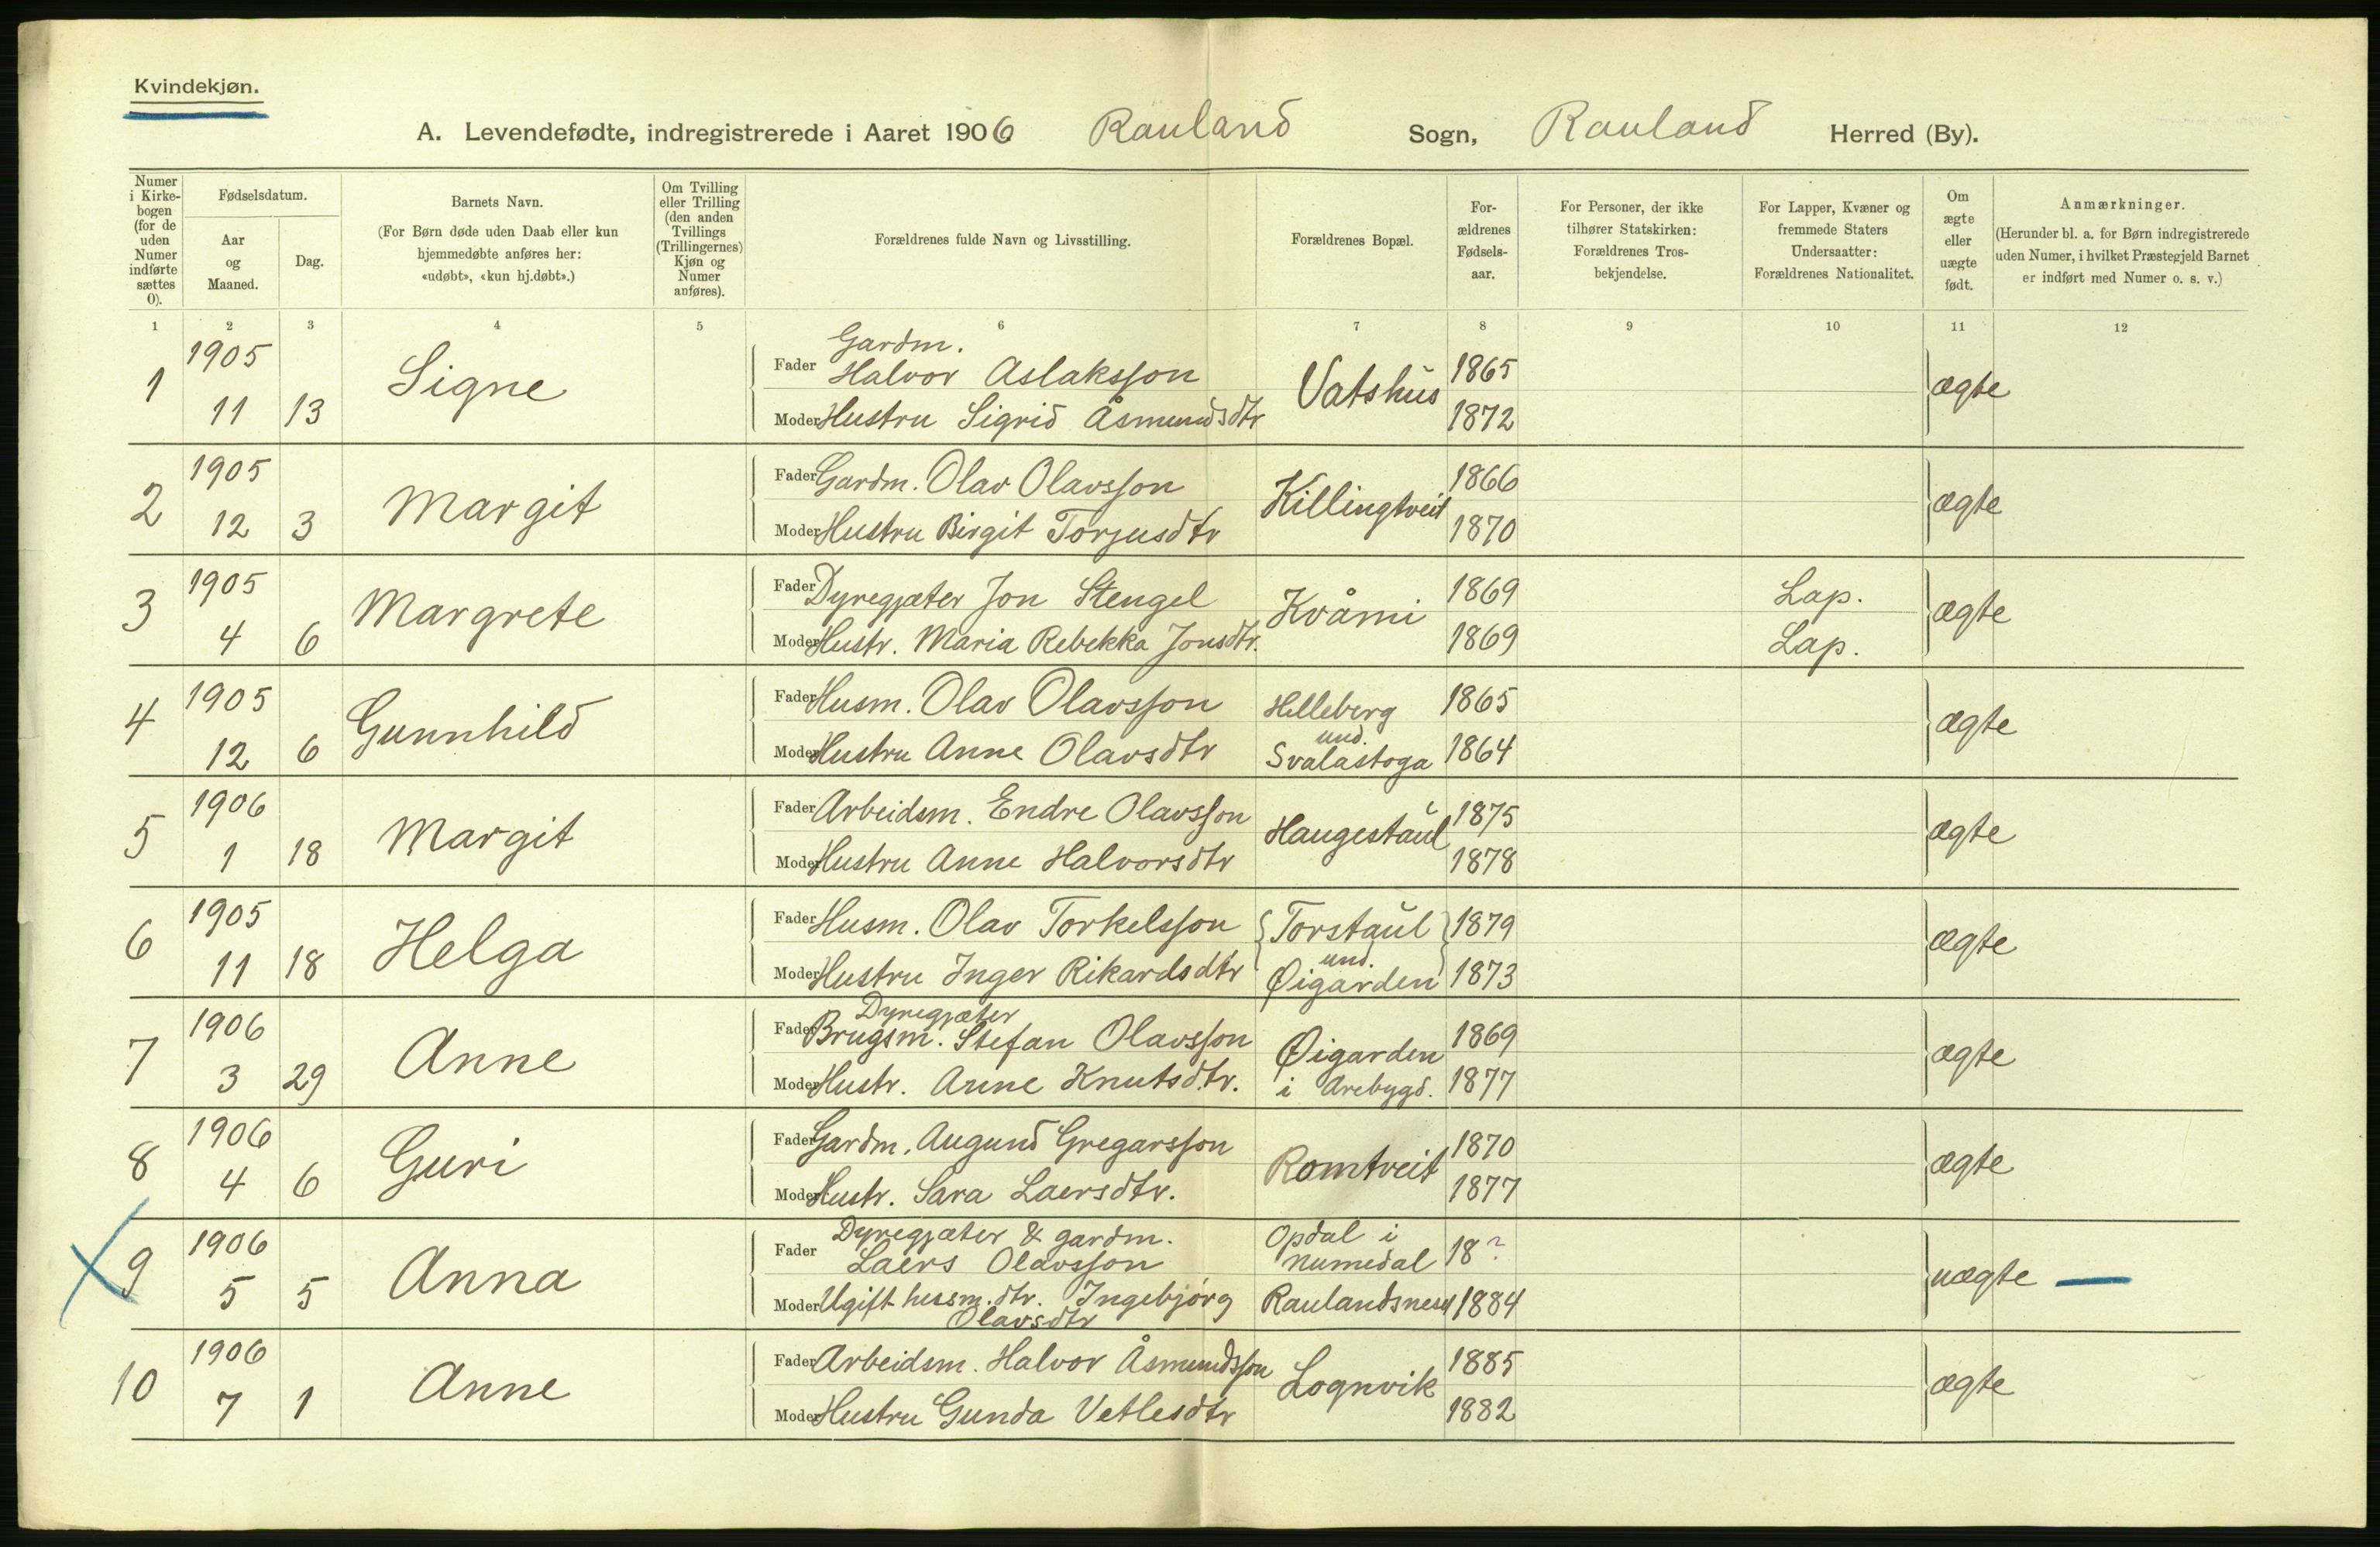 Kvindekjøn.
A. Levendefødte, indregistrerede i Aaret 1906 Rauland Sogn, Rauland Herred (By).
Numer i Kirkebogen (for de uden Numer indførte sættes 0).
Fødselsdatum.
Aar og Maaned.
Dag.
Barnets Navn.
(For Børn døde uden Daab eller kun hjemmedøbte anføres her: «udøbt», «kun hj.døbt».)
Om Tvilling eller Trilling (den anden Tvillings (Trillingernes) Kjøn og Numer anføres).
Forældrenes fulde Navn og Livsstilling.
Forældrenes Bopæl.
Forældrenes Fødselsaar.
For Personer, der ikke tilhører Statskirken: Forældrenes Trosbekjendelse.
For Lapper, Kvæner og fremmede Staters Undersaatter: Forældrenes Nationalitet.
Om ægte eller uægte født.
Anmærkninger.
(Herunder bl. a. for Børn indregistrerede uden Numer, i hvilket Præstegjeld Barnet er indført med Numer o. s. v.)
1 2 3 4 5 6 7 8 9 10 11 12
1 1905 11 13 Signe Fader Gardm. Halvor Aslaksson Vatshus 1865 ægte
Moder Hustru Sigrid Åsmundsdtr 1872
2 1905 12 3 Margit Fader Gardm. Olav Olavsson Killingtveit 1866 ægte
Moder Hustru Birgit Torjusdtr 1870
3 1905 4 6 Margrete Fader Dyregjæter Jon Stengel Kvåmi 1869 Lap. ægte
Moder Hustr. Maria Rebekka Jonsdtr. 1869 Lap.
4 1905 12 6 Gunnhild Fader Husm. Olav Olavsson Helleberg und. 1865 ægte
Moder Hustru Anne Olavsdtr Svalastoga 1864
5 1906 1 18 Margit Fader Arbeidsm. Endre Olavsson Haugestaul 1875 ægte
Moder Hustru Anne Halvorsdtr 1878
6 1905 11 18 Helga Fader Husm. Olav Torkelsson Torstaul und. 1879 ægte
Moder Hustru Inger Rikardsdtr Øigarden 1873
7 1906 3 29 Anne Fader Dyregjæter Brugsm. Stefan Olavsson Øigarden 1869 ægte
Moder Hustr. Anne Knutsdtr. i Arebygd. 1877
8 1906 4 6 Guri Fader Gardm. Augund Gregarsson Romtveit 1870 ægte
Moder Hustr. Sara Laersdtr. 1877
9 1906 5 5 Anna Fader Dyregjæter & gardm. Laers Olavsson Opdal i Numedal 18? uægte —
Moder Ugift husm.dtr. Ingebjørg Olavsdtr Raulandsnes 1884
10 1906 7 1 Anne Fader Arbeidsm. Halvor Åsmundsson Lognvik 1885 ægte
Moder Hustru Gunda Vetlesdtr 1882